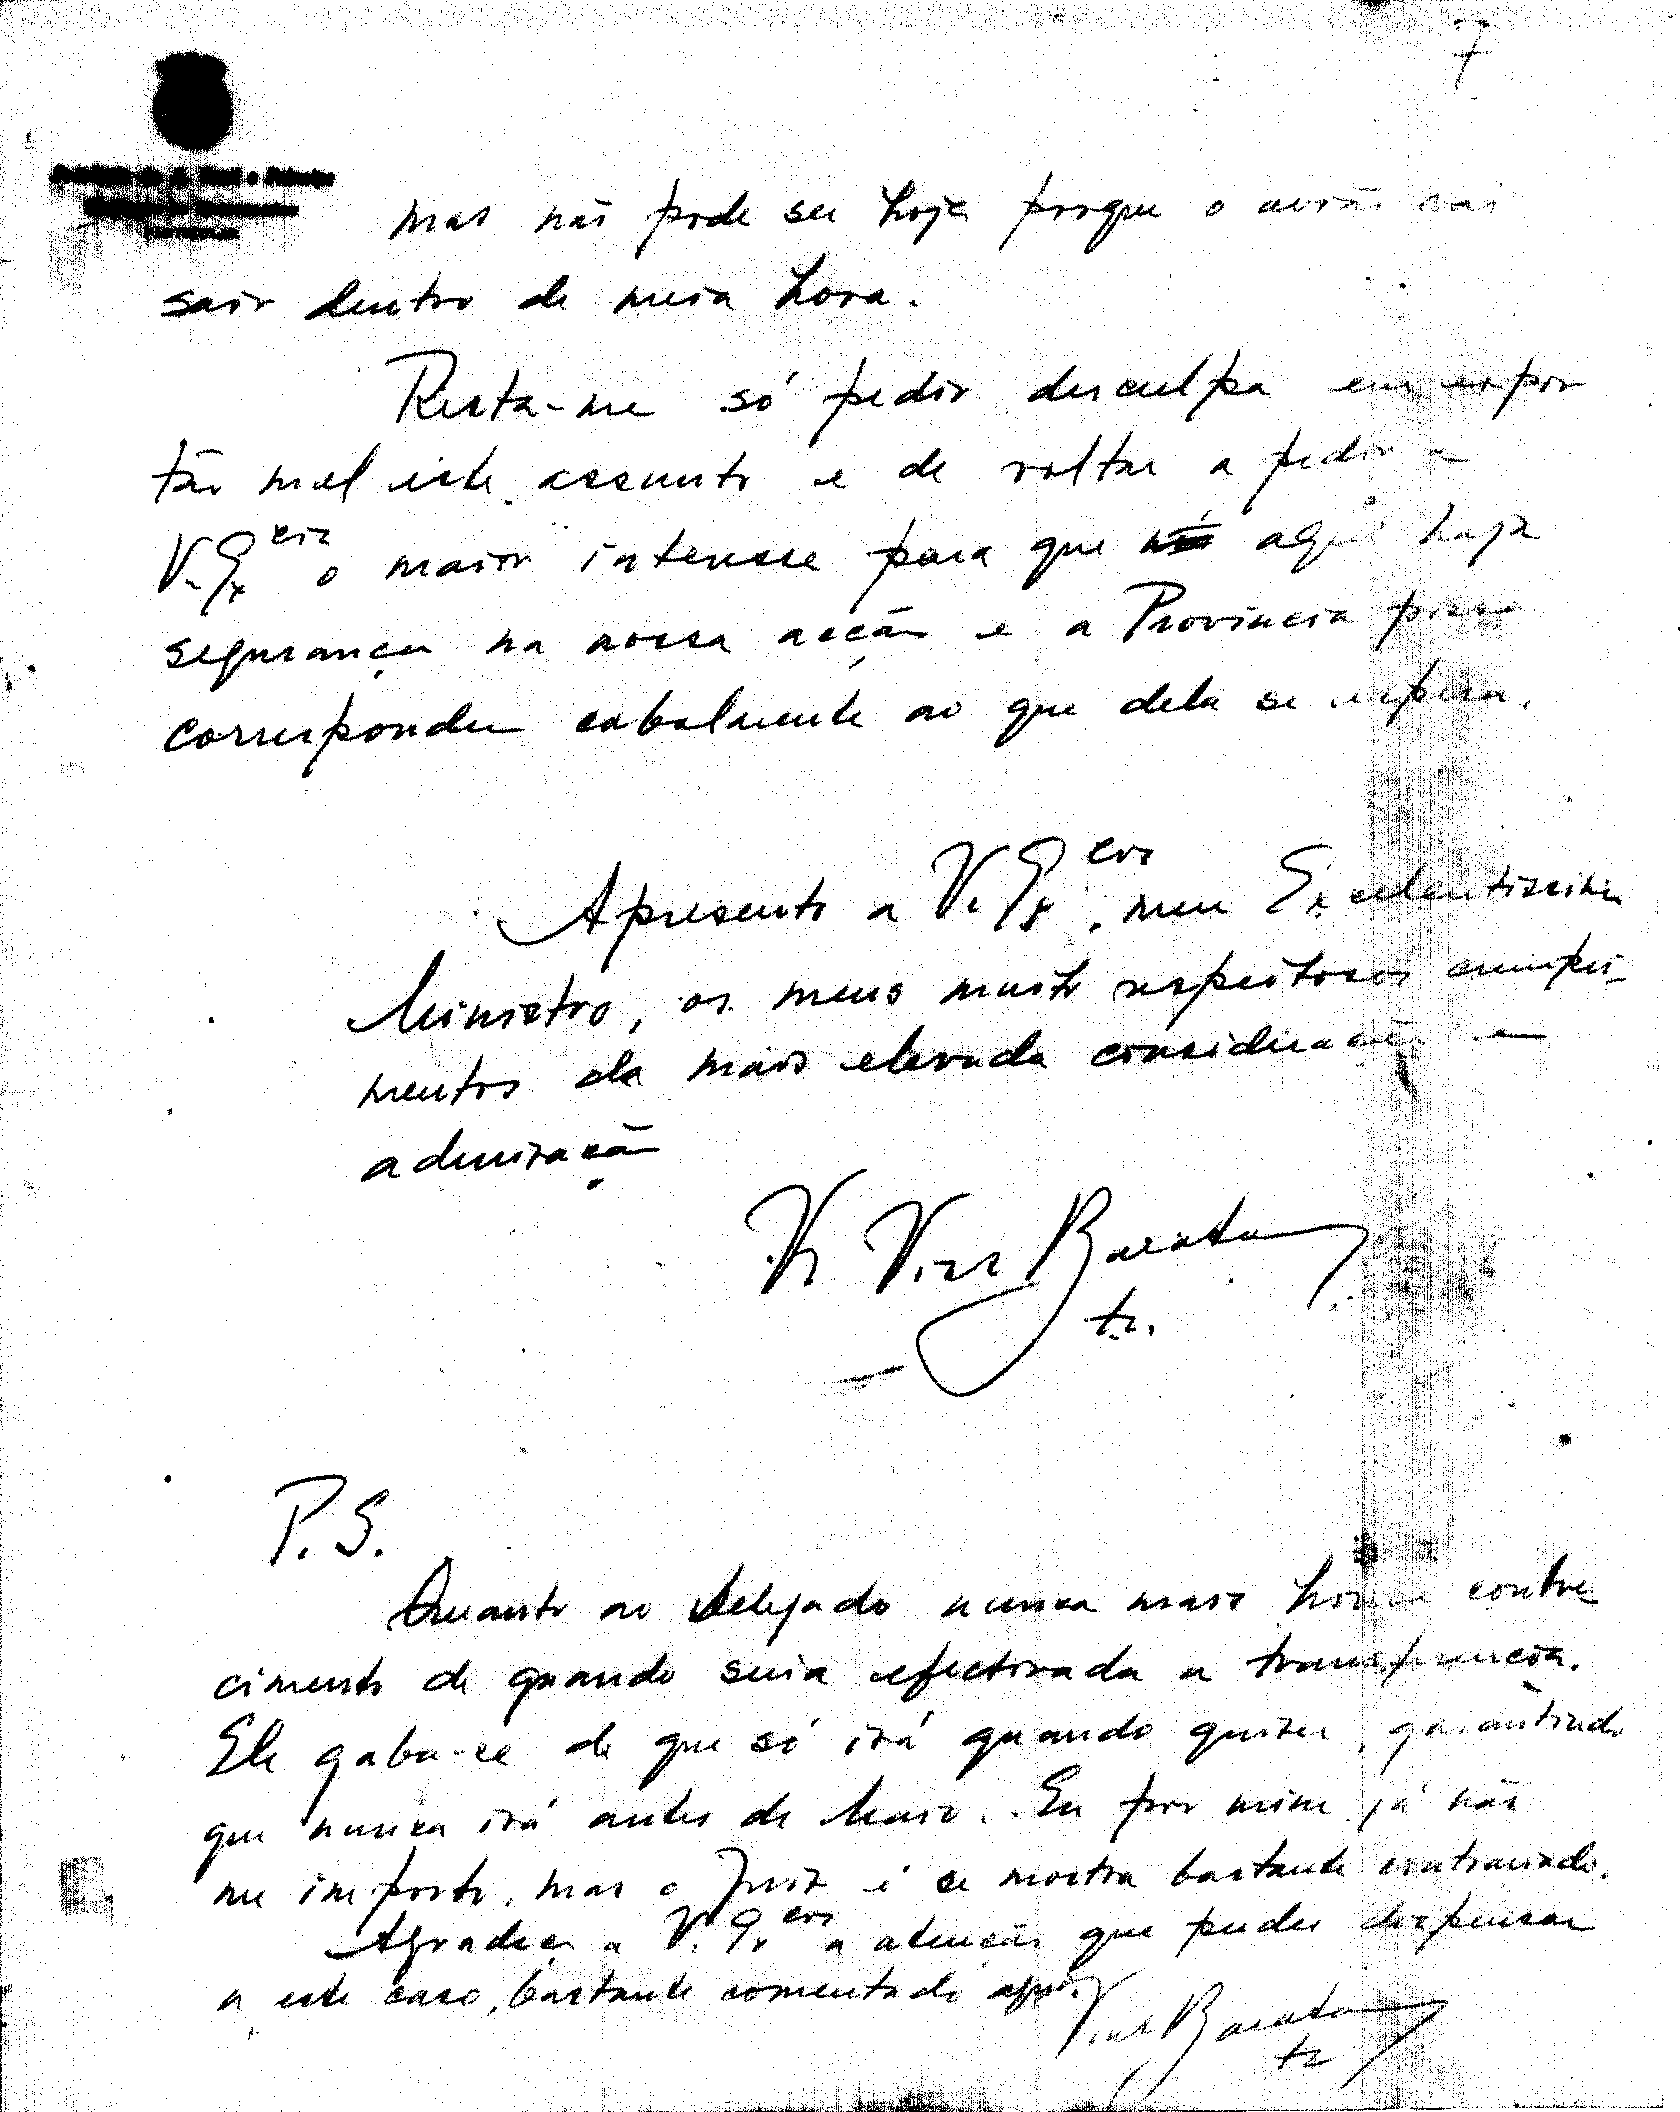 7
mas não pode ser hoje porque o avião vai
sair dentro de meia hora.
Resta-me só pedir desculpa em expor
tão mal este assunto e de voltar a pedir a
V. Ex.cia o maior interesse para que aqui haja
segurança na nossa acção e a Província possa
corresponder cabalmente ao que dela se espera.
Apresento a V. Ex.cia, meu Excelentíssimo
Ministro, os meus muito respeitosos cumpri-
mentos da mais elevada consideração e
admiração
Vaz Barata
P.S.
Quanto ao Delegado nunca mais houve conhe
cimento de quando seria efectivada a transferência.
Ele gaba-se de que só irá quando quiser, garantindo
que nunca irá antes de Maio. Eu por mim já não
me importo, mas o Juiz é se mostra bastante contrariado.
Agradeço a V. Ex.cia a atenção que puder dispensar
a este caso, bastante comentado aqui.
Barata